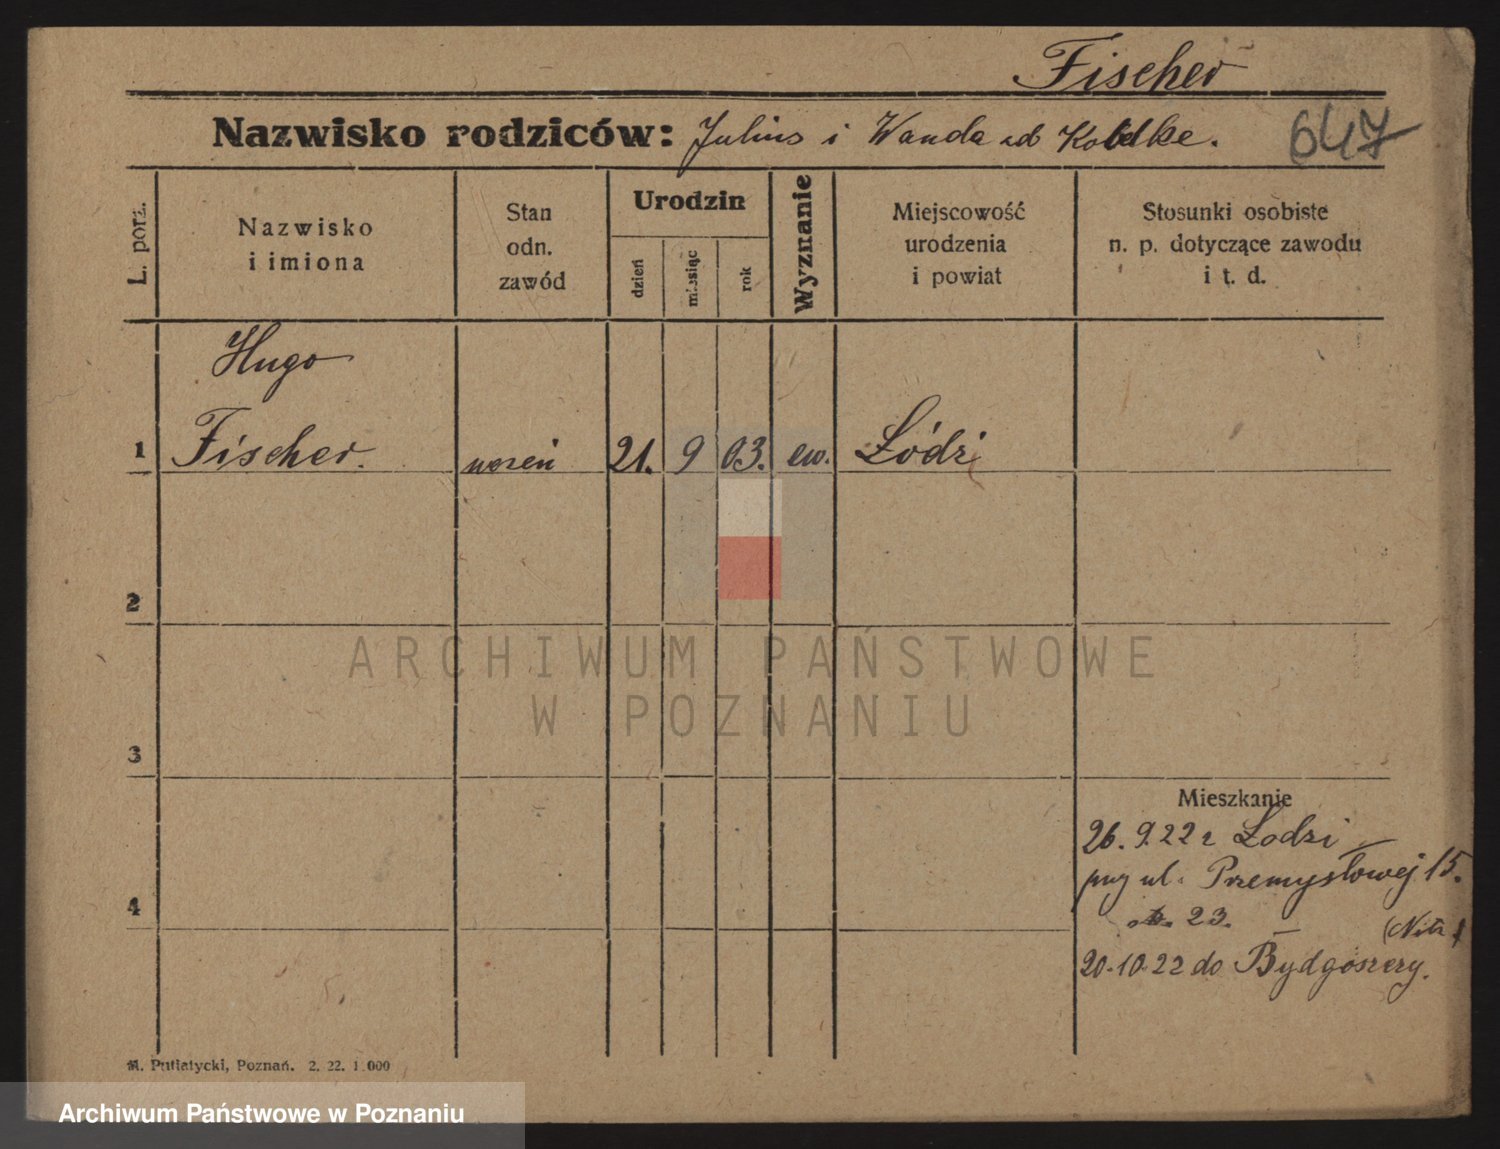 Fischer
Nazwisko rodziców: Julius i Wanda
647
L. porz.
Nazwisko
i imiona
Stan
odn.
zawód
Urodzin
dzień
miesiąc
rok
Wyznanie
Miejscowość
urodzenia
i powiat
Stosunki osobiste
n. p. dotyczące zawodu
i t. d.
Hugo
1 Fischer. uczeń 21. 9 03. ew. Łódź
2
ARCHIWUM PAŃSTWOWE
W POZNANIU
3
Mieszkanie
26. 9. 22 z Łodzi
przy ul. Przemysłowej 15.
4
23.
20.10.22 do Bydgoszczy.
M. Putiatycki, Poznań. 2. 22. 1.000
Archiwum Państwowe w Poznaniu